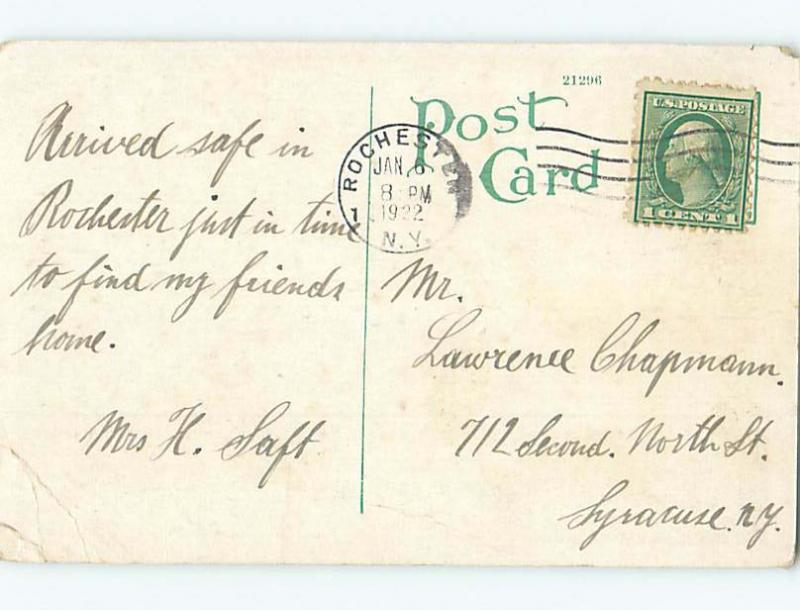 Arrived safe in
Rochester just in time
to find my friends
home.
Mrs H. Saft
21296
Post
Card
ROCHESTER
JAN 6
8 PM
1922
N.Y.
1
U.S. POSTAGE
1 CENT 1
Mr.
Lawrence Chapmann.
712 Second. North St.
Syracuse. N.Y.